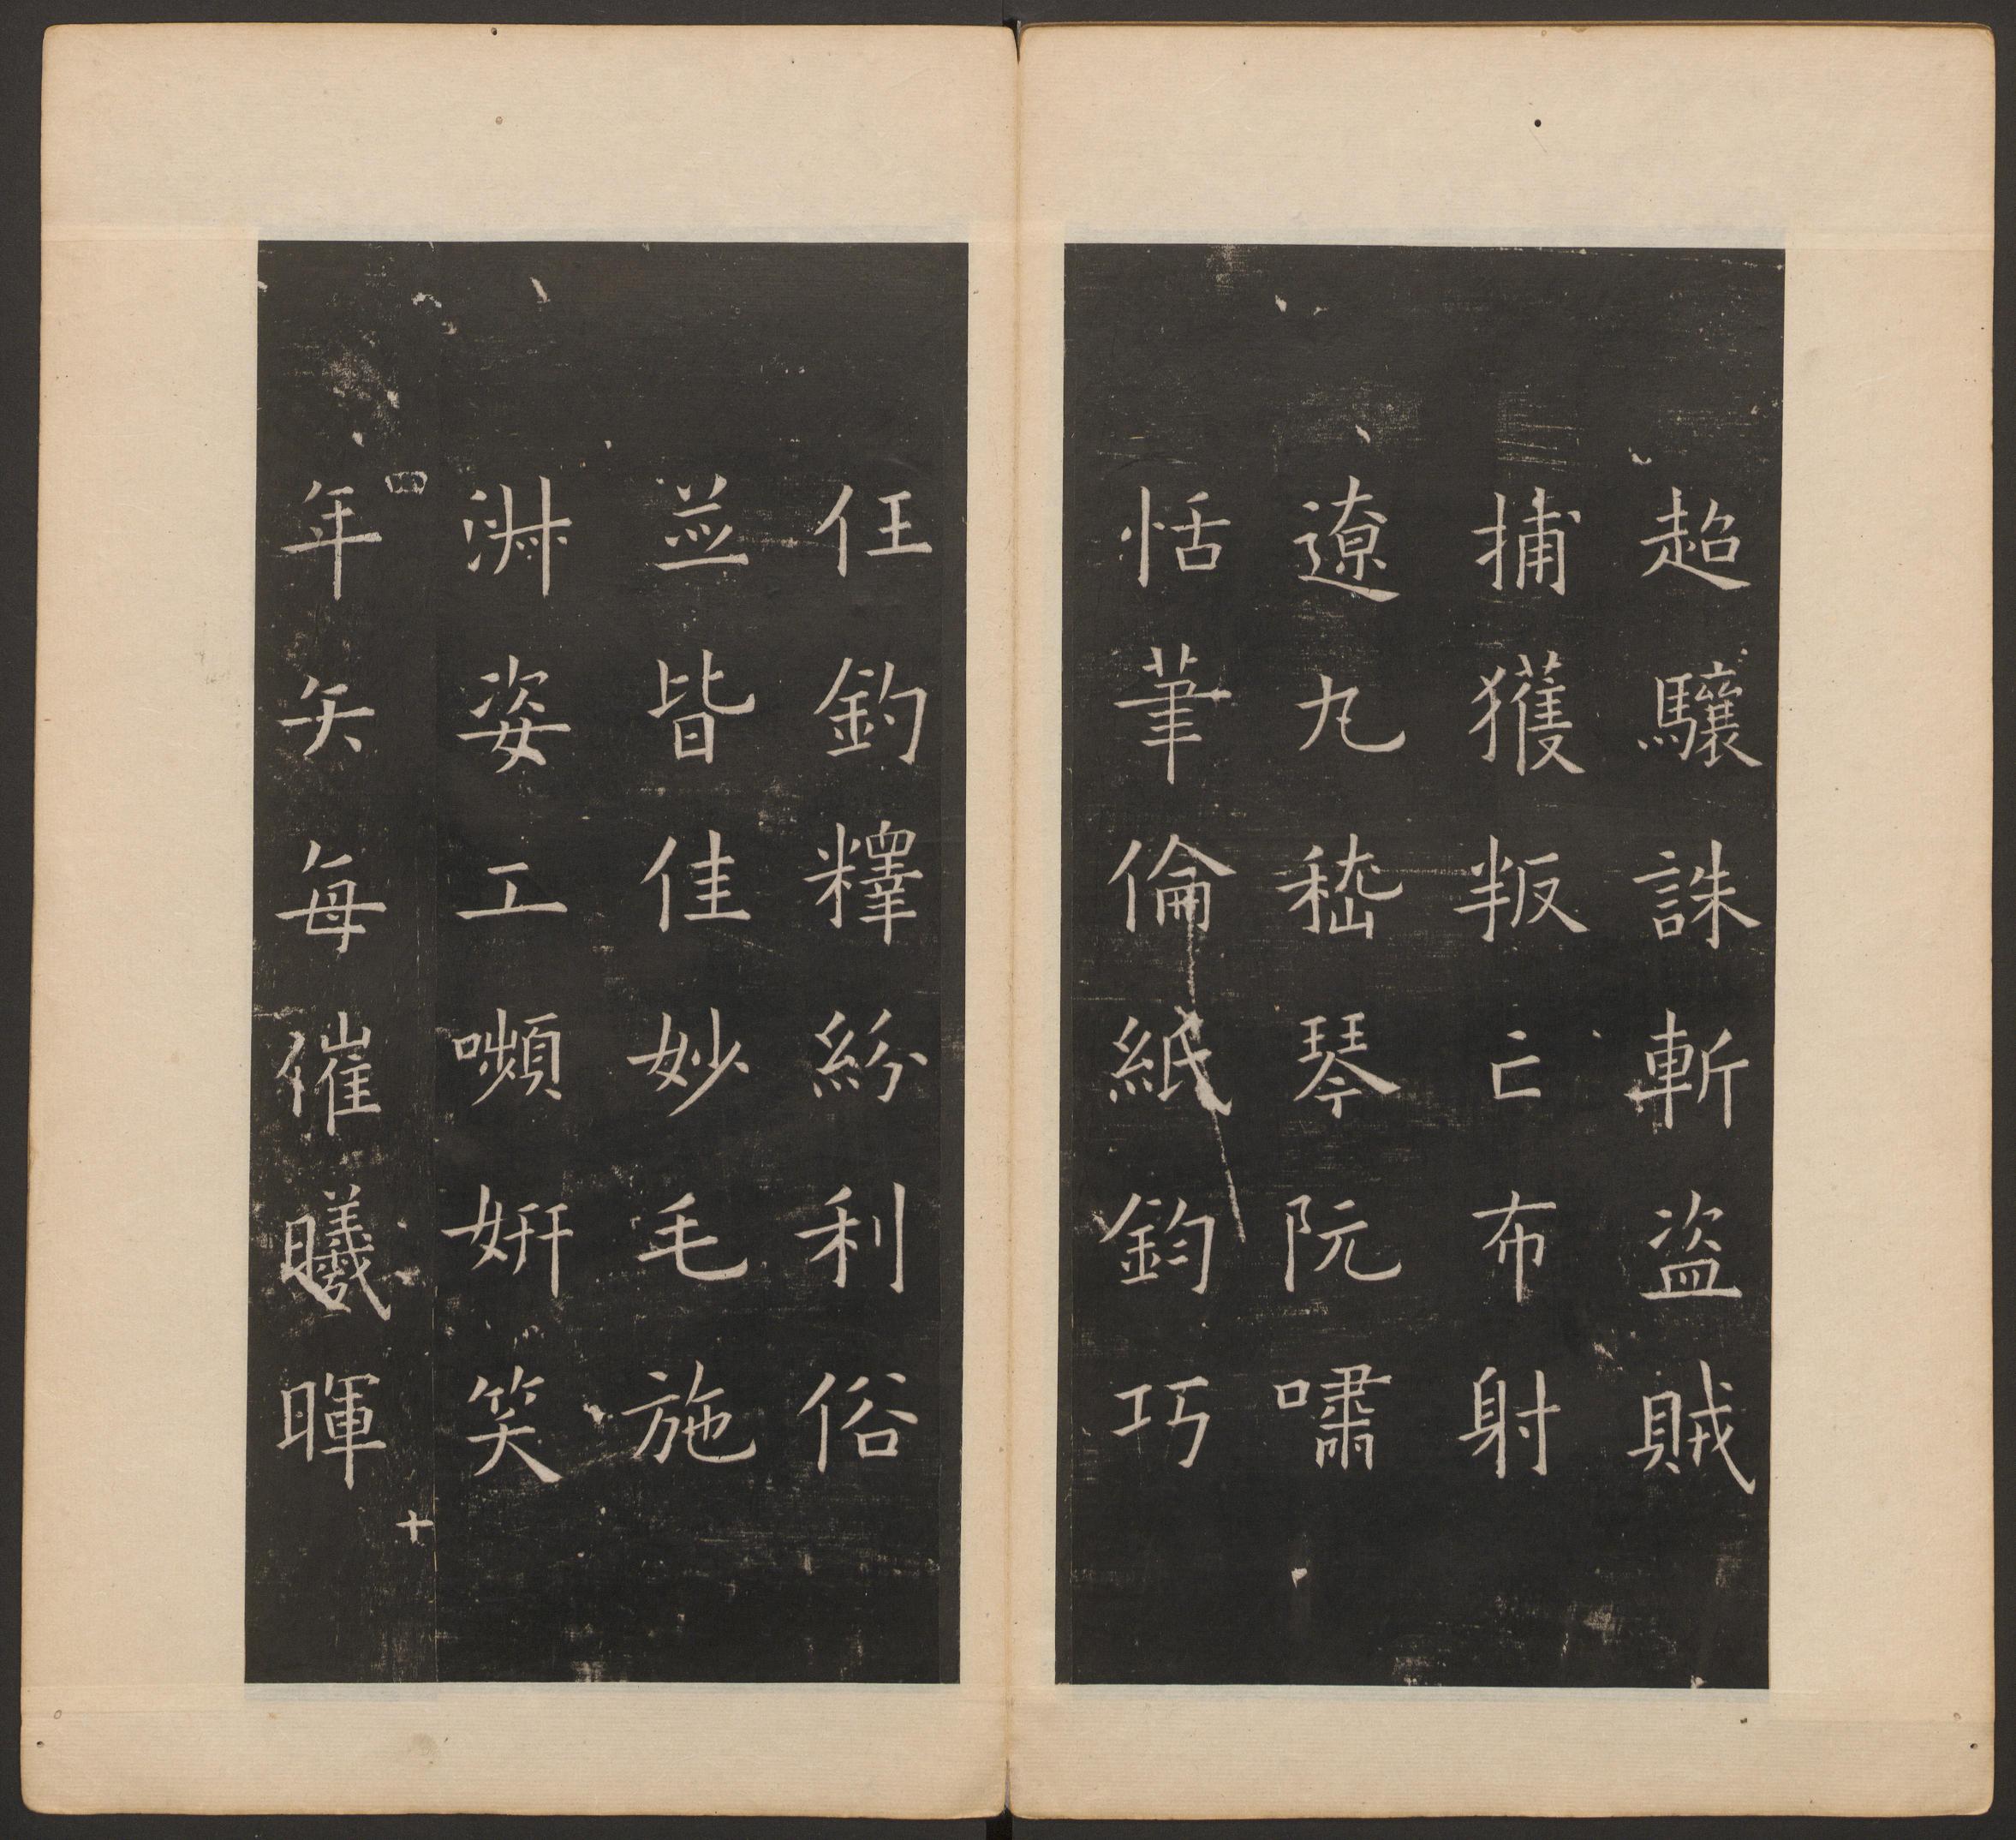 超驤誅斬盗賊
捕獲叛亡布射
遼丸嵇琴阮嘯
恬筆倫紙鈞巧
任釣釋紛利俗
並皆佳妙毛施
淋姿工嚬妍笑
年矢每催曦暉
四
十